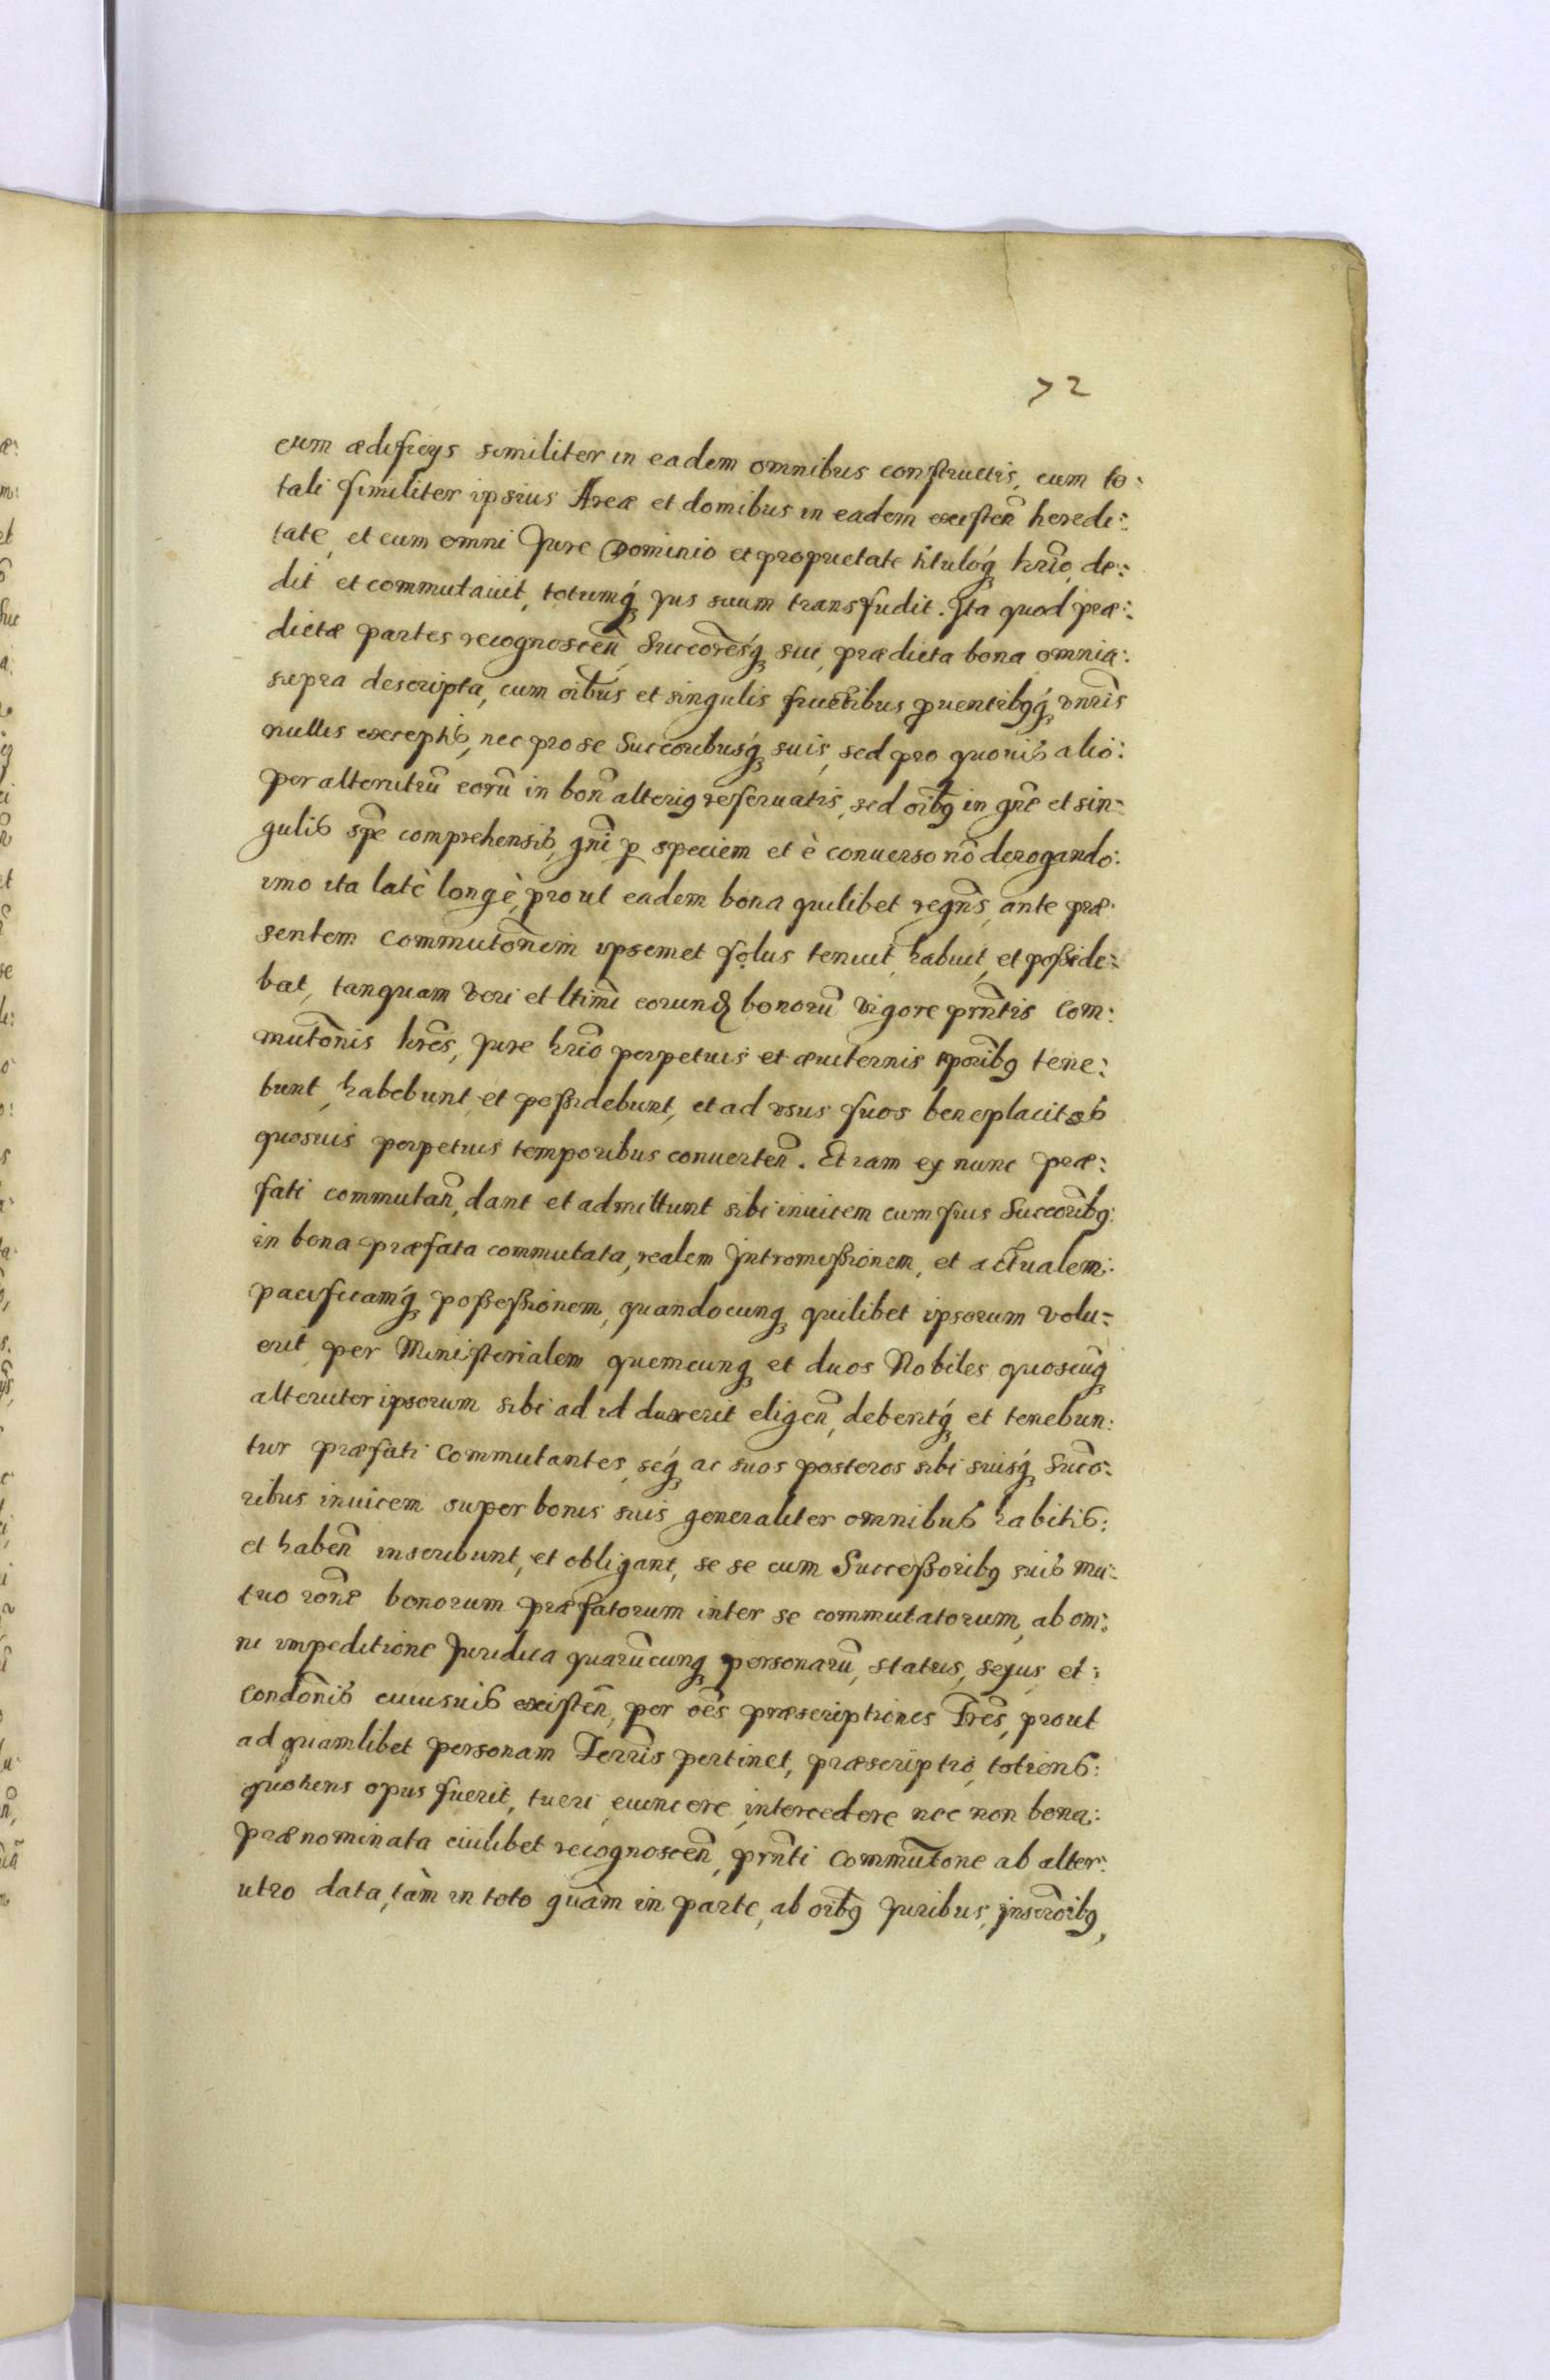 72
cum ædificÿs similiter in eadem omnibus constructis, cum to:
tali similiter ipsius Areæ et domibus in eadem existeñ heredi:
tate, et cum omni Jure Dominio et proprietate titulóq hrĩo, de:
dit et commutavit, totumq́ jus suum transfudit. Ita quod præ:
dictæ partes recognosceñ Succorẽsq́ sui, prædicta bona omnia:
supra descripta, cum oĩbus et singulis fructibus, ꝓventibꝰq́
nullis exceptis, nec pro se Succoribusq́ suis, sed pro quovis alio:
per alterutrũ eorũ in boñ alteriꝰ reservatis, sed oĩbꝰ in gñe et sin:
gulis spẽ comprehensis, gñi ꝑ speciem et è converso nõ derogando:
imo ita latè longè, prout eadem bona quilibet regñs, ante præ:
sentem commutoñem ipsemet solus tenuit, habuit, et posside:
bat, tanquam veri et ltimĩ eorund bonorũ vigore prñtis com:
mutoñis hrẽs, Jure hrĩo perpetuis et æviternis tporĩbꝰ tene:
bunt, habebunt, et possidebunt, et ad usus suos beneplacitos
quosvis perpetuis temporibus converteñ. Et iam ex nunc præ:
fati commutañ, dant et admittunt sibi invicem cum suis Succorĩbꝰ:
in bona præfata commutata, realem Intromissionem, et actualem:
pacificamq́ possessionem, quandocunq quilibet ipsorum volu:
erit, per Ministerialem quemcunq et duos Nobiles quoscũq
alteruter ipsorum sibi ad id duxerit eligeñ, debentq́ et tenebun:
tur præfati Commutantes, seq́ ac suos posteros sibi suisq́ Succo:
ribus invicem super bonis suis generaliter omnibus habitis:
et habeñ inscribunt, et obligant, se se cum Successoribꝰ suis mu:
tuo roñe bonorum præfatorum inter se commutatorum, ab om:
ni impeditione Juridica quarũcunq personarũ, status, sexus et:
condoñis cuiusvis existeñ, per oẽs præscriptiones Trẽs, prout
ad quamlibet personam Terrĩs pertinet, præscriptio, totiens:
quotiens opus fuerit, tueri evincere, intercedere nec non bona:
prænominata cuilibet recognosceñ, prñti Commutoñe ab alter:
utro data, tàm in toto quàm in parte, ab oĩbꝰ Juribus, inscroĩbꝰ,